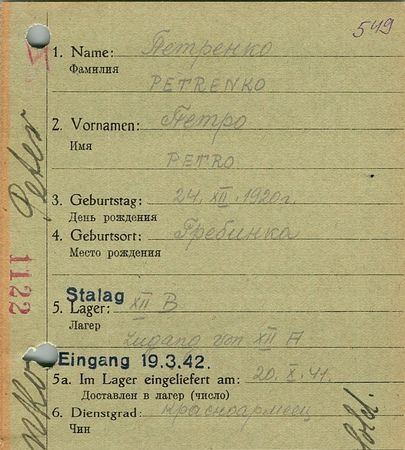 549
1. Name: Петренко
Фамилия
PETRENKO
2. Vornamen: Петро
Имя
PETRO
3. Geburtstag: 24. XII. 1920г.
День рождения
4. Geburtsort: Гребинка
Место рождения
Stalag
5. Lager: XII B
Лагер
Zugang von XII A
Eingang 19.3.42.
5a. Im Lager eingeliefert am: 20. X. 41.
Доставлен в лагер (число)
6. Dienstgrad: Красноармеец
Чин
Peter
1122